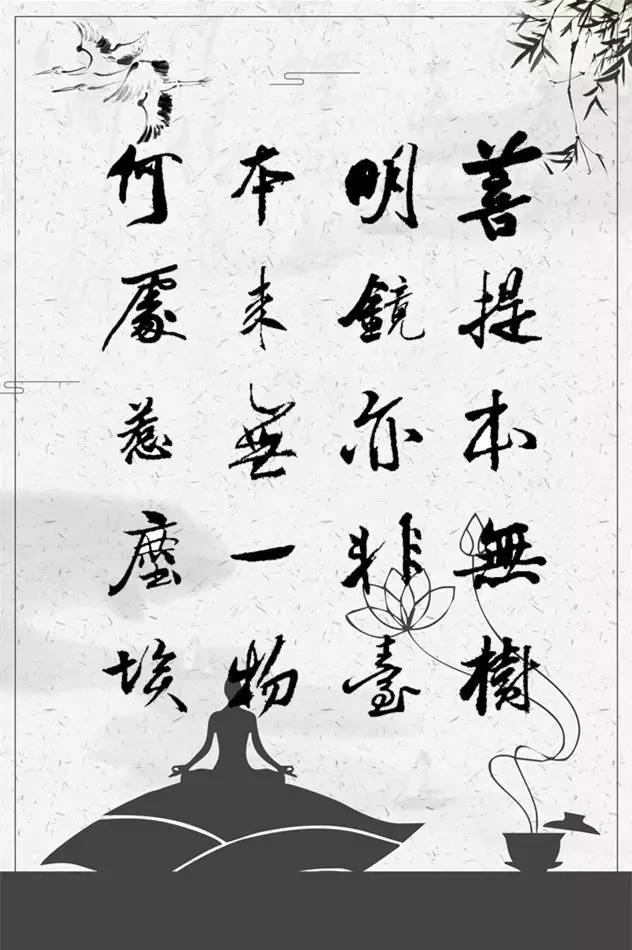 善提本無樹
明鏡亦非臺
本来無一物
何處惹塵埃